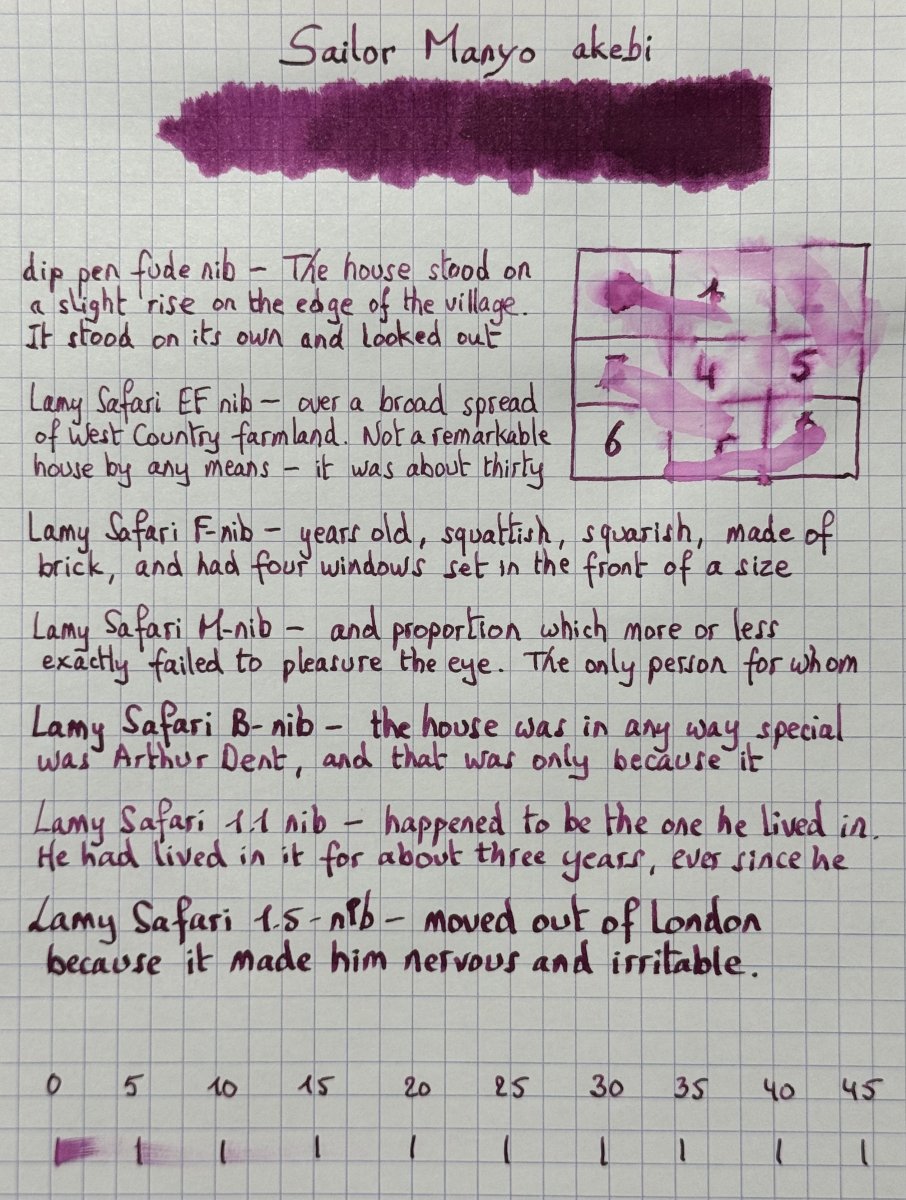 Sailor Manyo akebi
dip pen fude nib – The house stood on
a slight rise on the edge of the village.
It stood on its own and looked out
1
4 5
6
Lamy Safari EF nib – over a broad spread
of West Country farmland. Not a remarkable
house by any means – it was about thirty
Lamy Safari F-nib – years old, squattish, squarish, made of
brick, and had four windows set in the front of a size
Lamy Safari M-nib – and proportion which more or less
exactly failed to pleasure the eye. The only person for whom
Lamy Safari B-nib – the house was in any way special
was Arthur Dent, and that was only because it
Lamy Safari 1.1 nib – happened to be the one he lived in.
He had lived in it for about three years, ever since he
Lamy Safari 1.5-nib – moved out of London
because it made him nervous and irritable.
0 5 10 15 20 25 30 35 40 45